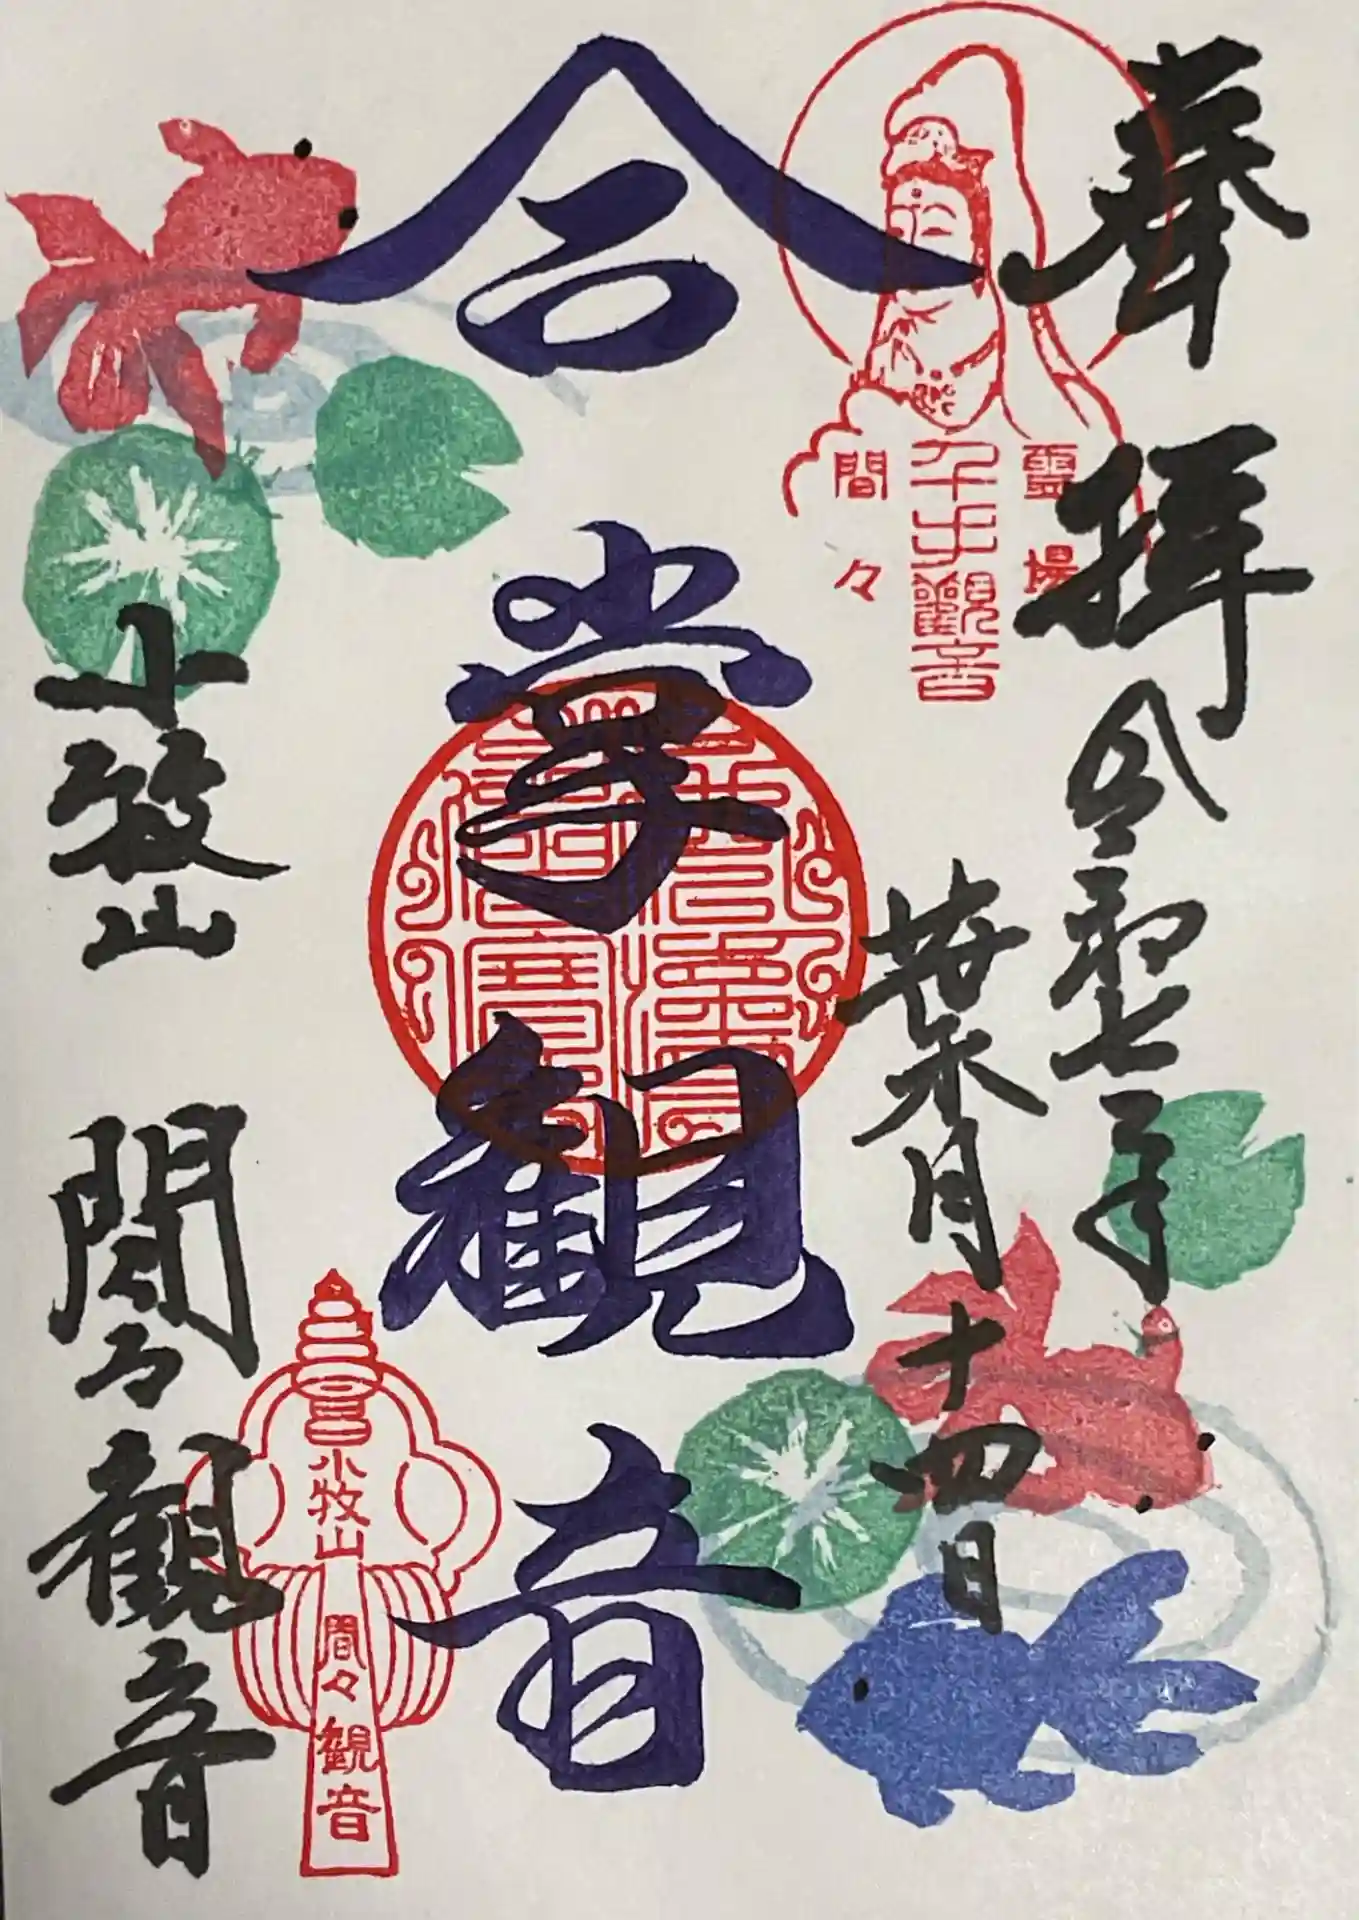 奉拝
令和七年
葉月十四日
霊場
千手観音
間々
合掌観音
小牧山
間々観音
小牧山
間々観音